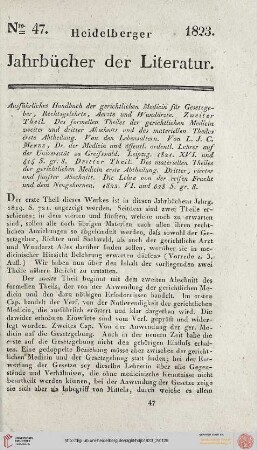 Nro. 47. Heidelberger 1823.
Jahrbücher der Literatur.
Ausführliches Handbuch der gerichtlichen Medicin für Gesetzge-
ber, Rechtsgelehrte, Aerzte und Wundärzte. Zweiter
Theil. Des formellen Theiles der gerichtlichen Medicin
zweiter und dritter Abschnitt und des materiellen Theiles
erste Abtheilung. Von den Lebensaltern. Von L. J. C.
Mende, Dr. der Medicin und öffentl. ordentl. Lehrer auf
der Universität zu Greifswald. Leipzig. 1821. XVI. und
S. gr. 8. Dritter Theil. Des materiellen Theiles
der gerichtlichen Medicin erste Abtheilung. Dritter, vierter
und fünfter Abschnitt. Die Lehre von der reifen Frucht
und dem Neugebornen. 1822. VI. und S. gr. 8.
Der erste Theil dieses Werkes ist in diesen Jahrbüchern Jahrg.
S. angezeigt worden. Seitdem sind zwei Theile er-
schienen; in dem vierten und fünften, welche noch zu erwarten
sind, sollen alle noch übrigen Materien nach allen ihren recht-
lichen Beziehungen so abgehandelt werden, daß sowohl der Ge-
setzgeber, Richter und Sachwald, als auch der gerichtliche Arzt
und Wundarzt Alles darüber finden wird, was er nur in me-
dicinischer Hinsicht Belehrung erwarten dürfte (Vorrede z. 3.
Aufl.) Wir haben über den Inhalt der vorliegenden zwei
Theile nähern Bericht zu erstatten.
Der zweite Theil beginnt mit dem zweiten Abschnitt des
formellen Theils, der von der Anwendung der gerichtlichen Me-
dicin und den dazu nöthigen Erfordernissen handelt. Im ersten
Cap. handelt der Verf. von der Nothwendigkeit der gerichtlichen
Medicin, die ausführlich erörtert und klar dargethan wird. Die
dawider erhobenen Einwürfe sind vom Verf. geprüft und wider-
legt worden. Zweites Cap. Von der Anwendung der ger. Me-
dicin auf die Gesetzgebung. Auch in der neuern Zeit habe die
erste auf die Gesetzgebung nicht den gehörigen Einfluß erhal-
ten. Eine gedoppelte Beziehung müsse aber zwischen der gericht-
lichen Medicin und der Gesetzgebung statt finden; bei der Ent-
werfung der Gesetze sey dieselbe Lehrerin über alle Gegen-
stände und Verhältnisse, die ohne medicinische Kenntnisse nicht
beurtheilt werden können, bei der Anwendung der Gesetze zeige
sie sich aber als Inbegriff von Mitteln, durch welche es allein
47